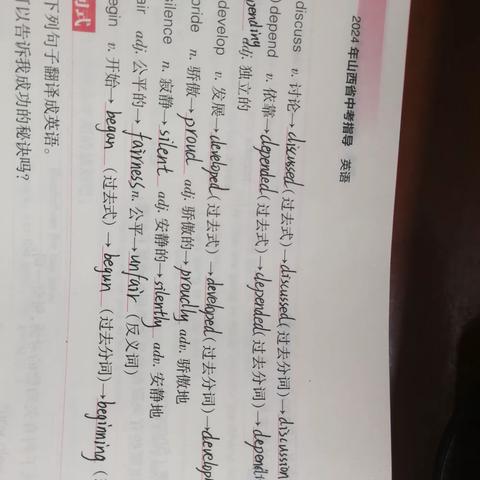 2024 年山西省中考指导 英语
discuss v. 讨论→discussed(过去式)→discussed(过去分词)→discussion
) depend v. 依靠→depended(过去式)→depended(过去分词)→
pending adj. 独立的
develop v. 发展→developed(过去式)→developed(过去分词)→develop
pride n. 骄傲→proud adj. 骄傲的→proudly adv. 骄傲地
silence n. 寂静→silent adj. 安静的→silently adv. 安静地
air adj. 公平的→fairness n. 公平→unfair (反义词)
egin v. 开始→began (过去式)→begun (过去分词)→beginning (
式
下列句子翻译成英语。
以告诉我成功的秘诀吗?